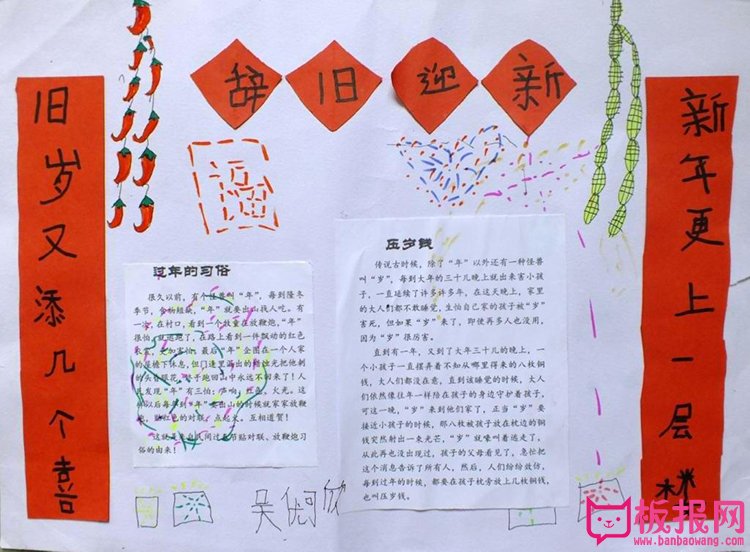 辞旧迎新
旧岁又添几个喜
新年更上一层
福
过年的习俗
很久以前，有个怪兽叫“年”，每到隆冬
季节，食物短缺，“年”就要出山找人吃。有
一次，在村口，看到一个放童在放鞭炮，“年”
很怕，就逃跑了，在路上看到一件飘动的红色
衣服，更加害怕，最后“年”企图在一个人家
的屋檐下休息，但门缝里漏出的烛光把他刺
的头昏眼花，年子跑回山中永远不回来了！人
们发现“年”有三怕：声响，红色，火光。这
年以后每年到“年”要出山的时候就家家放鞭
炮，贴红色的对联，点起火。互相道贺！
这就是来自民间过春节贴对联、放鞭炮习
俗的由来！
压岁钱
传说古时候，除了“年”以外还有一种怪兽
叫“岁”，每到大年的三十儿晚上就出来害小孩
子，一直延续了许多许多年，在这天晚上，家里
的大人们都不敢睡觉，生怕自己家的孩子被“岁”
害死，但如果“岁”来了，即使再多人也没用，
因为“岁”很厉害。
直到有一年，又到了大年三十儿的晚上，一
个小孩子一直摆弄着不知从哪里得来的八枚铜
钱，大人们都没在意，直到该睡觉的时候，大人
们依然像往年一样陪在孩子的身边守护着孩子，
可这一晚，“岁”来到他们家了，正当“岁”要
接近小孩子的时候，那八枚被孩子放在枕边的铜
钱突然射出一束光芒，“岁”就嚎叫着逃走了，
从此再也没出现过，孩子的父母看见了，急忙把
这个消息告诉了所有人，然后，人们纷纷效仿，
每到过年的时候，都要在孩子枕旁放上几枚铜钱，
也叫压岁钱。
板报网
www.banbaowang.com